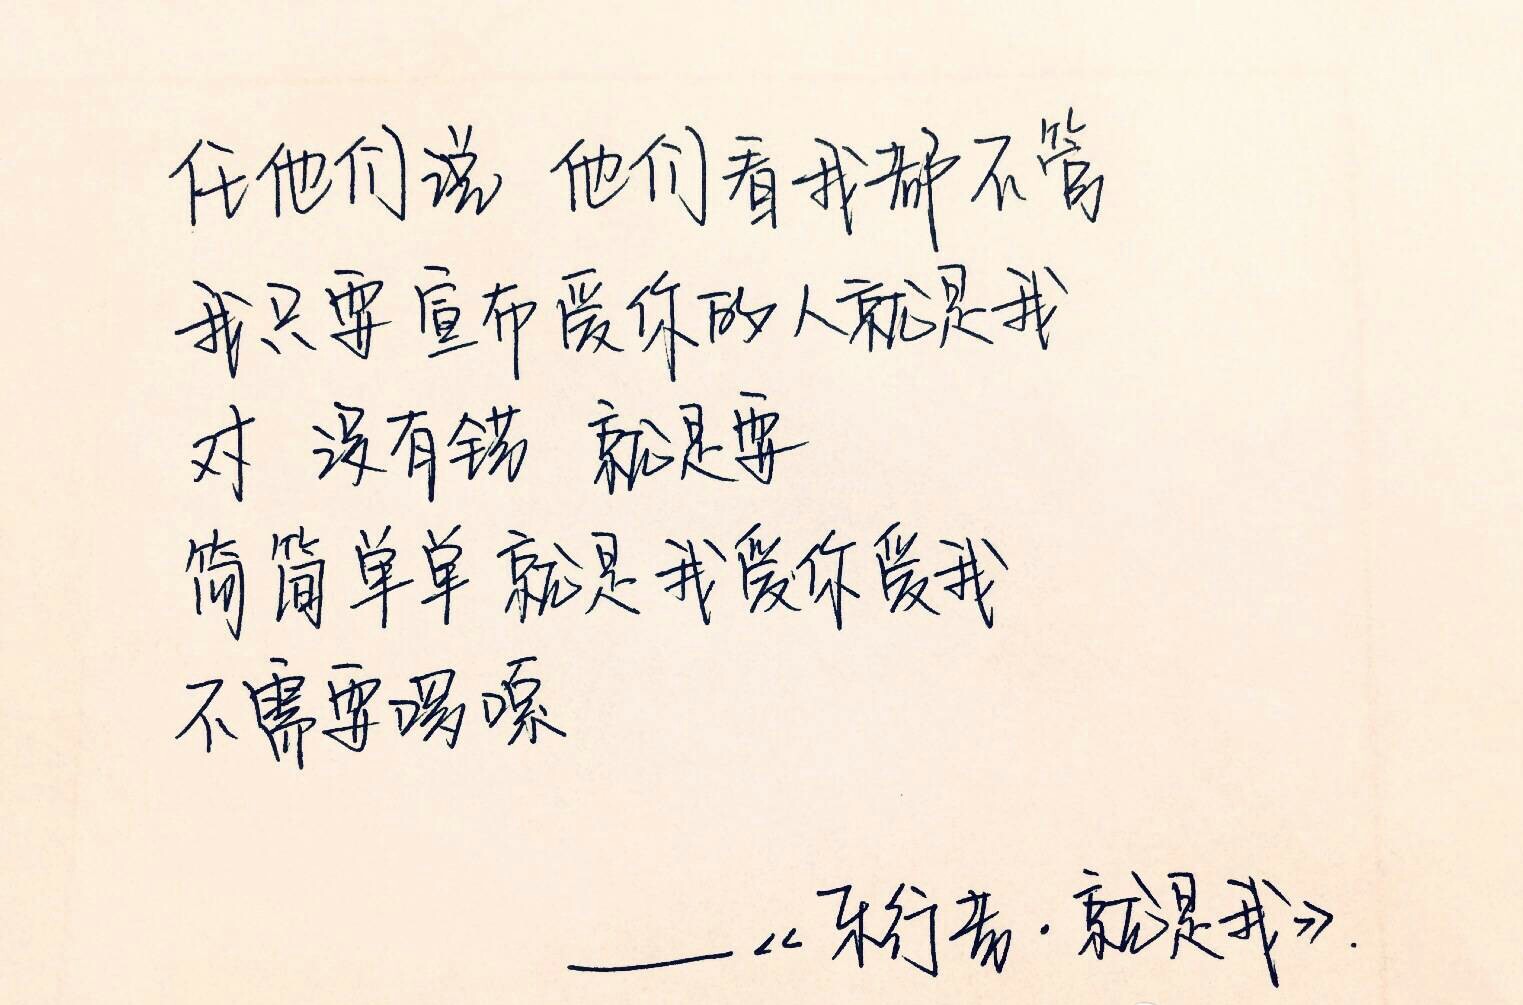 任他们说 他们看我都不管
我只要宣布爱你的人就是我
对 没有错 就是要
简简单单就是我爱你爱我
不需要啰嗦
——《乐行者·就是我》.